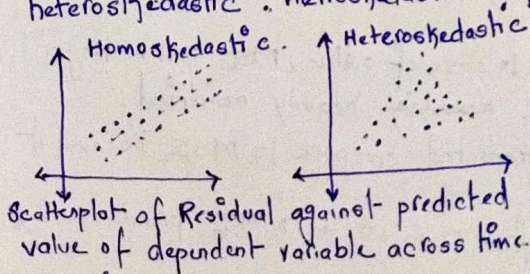 heteroskedastic.
Homoskedastic.
Heteroskedastic
Scatterplot of Residual against predicted
value of dependent variable across time.